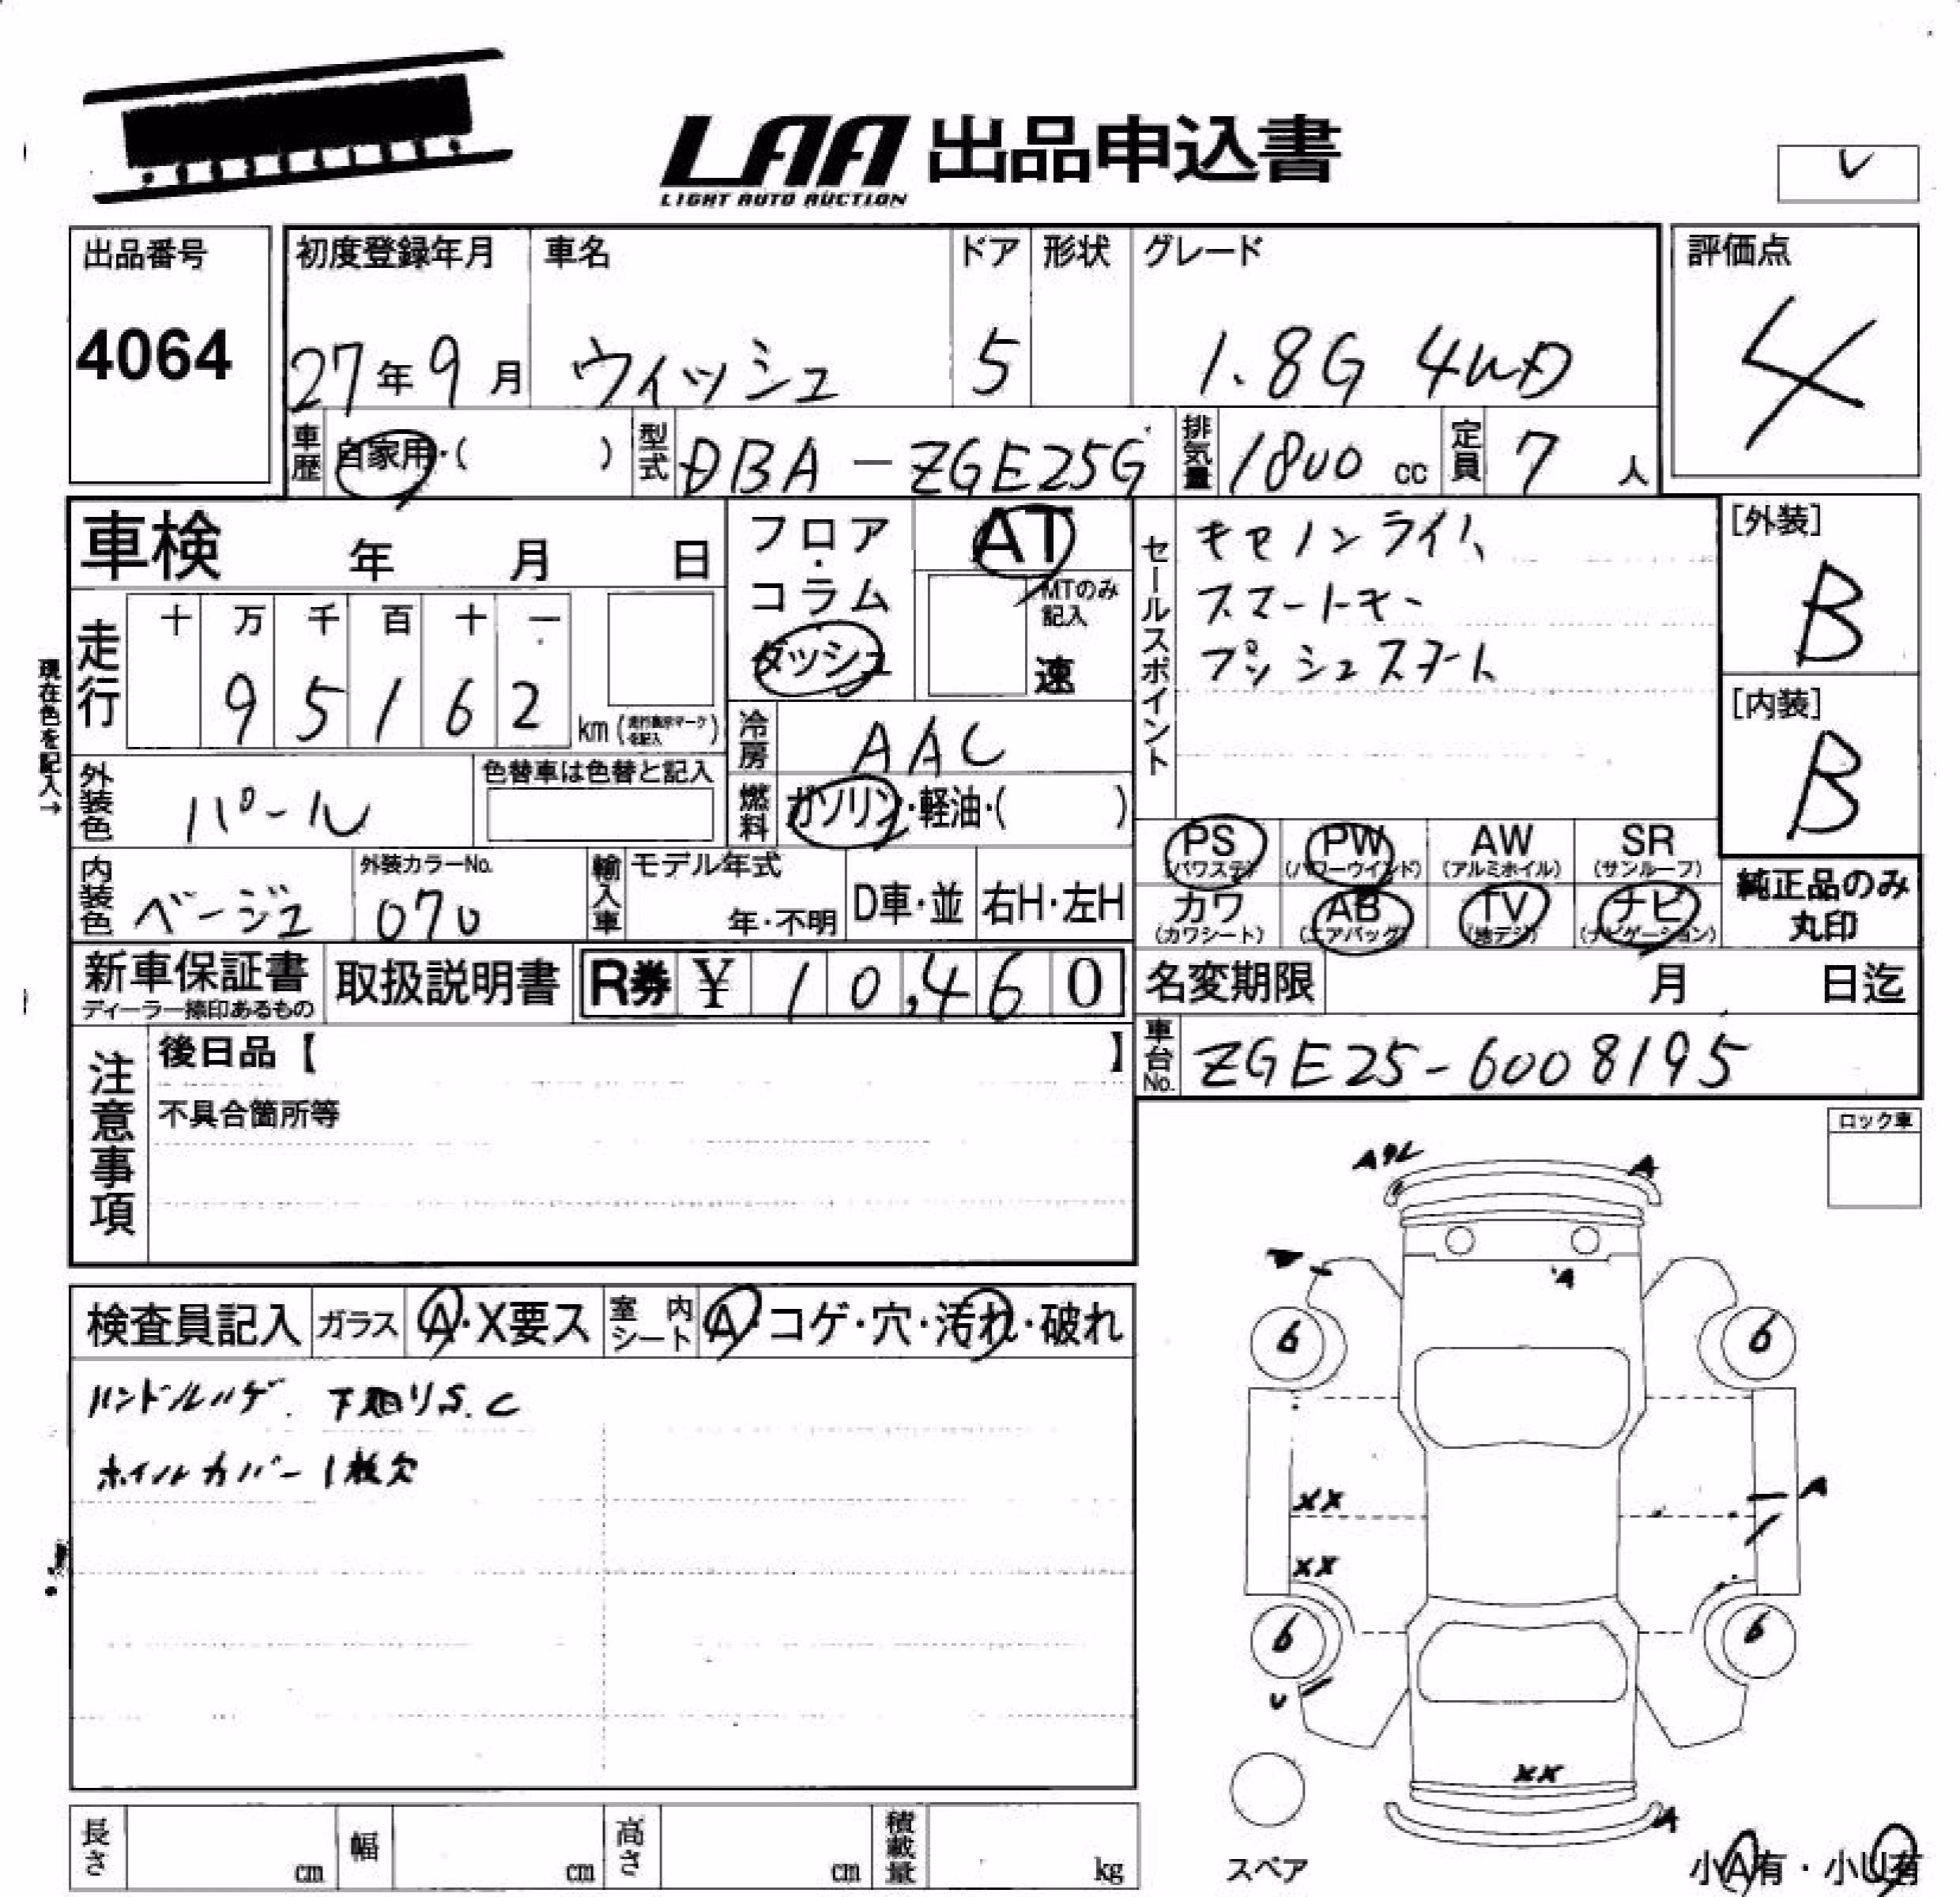 LAA 出品申込書
LIGHT AUTO AUCTION
出品番号
4064
初度登録年月
27年9月
車名
ウィッシュ
ドア
5
形状
グレード
1.8G 4WD
評価点
4
車歴
自家用・( )
型式
DBA-ZGE25G
排気量
1800 cc
定員
7人
車検 年 月 日
フロア・コラム
ダッシュ
AT
MTのみ記入
速
セールスポイント
スマートキー
プッシュスタート
[外装]
B
[内装]
B
現在色を記入→
走行
十 万 千 百 十 一
9 5 1 6 2
km
冷房
AAC
燃料
ガソリン・軽油・( )
外装色
パール
色替車は色替と記入
PS
(パワステ)
PW
(パワーウインド)
AW
(アルミホイル)
SR
(サンルーフ)
カワ
(カワシート)
AB
(エアバッグ)
TV
(地デジ)
ナビ
(ナビゲーション)
純正品のみ
丸印
内装色
ベージュ
外装カラーNo.
070
輸入車
モデル年式
年・不明
D車・並
右H・左H
新車保証書
ディーラー捺印あるもの
取扱説明書
R券 ¥ 10,460
名変期限 月 日迄
車台No.
ZGE25-6008195
注意事項
後日品【 】
不具合箇所等
ロック車
検査員記入
ガラス
A・X要ス
室内シート
A・コゲ・穴・汚れ・破れ
ハンドルハゲ. 下廻りS.C
ホイルカバー1枚欠
A
A
6
6
XX
A
XX
6
6
U
XX
A
スペア
小A有・小U有
長さ cm
幅 cm
高さ cm
積載量 kg